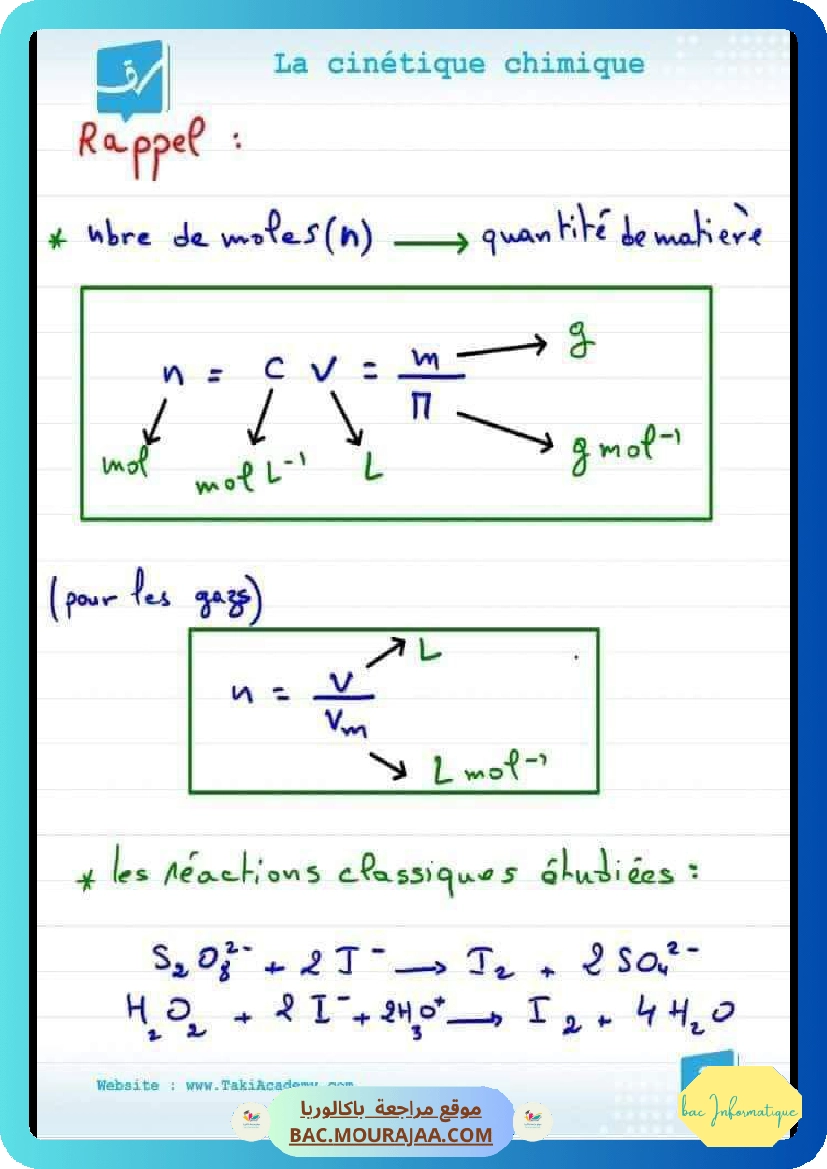 La cinétique chimique
Rappel :
* nbre de moles (n) → quantité de matière
n = C V = m/M
g
mol
mol L⁻¹
L
g mol⁻¹
(pour les gazs)
n = V/Vm
L
L mol⁻¹
* les réactions classiques étudiées :
S₂O₈²⁻ + 2 I⁻ → I₂ + 2 SO₄²⁻
H₂O₂ + 2 I⁻ + 2H₃O⁺ → I₂ + 4 H₂O
Website : www.TakiAcademy.com
موقع مراجعة باكالوريا
BAC.MOURAJAA.COM
bac Informatique